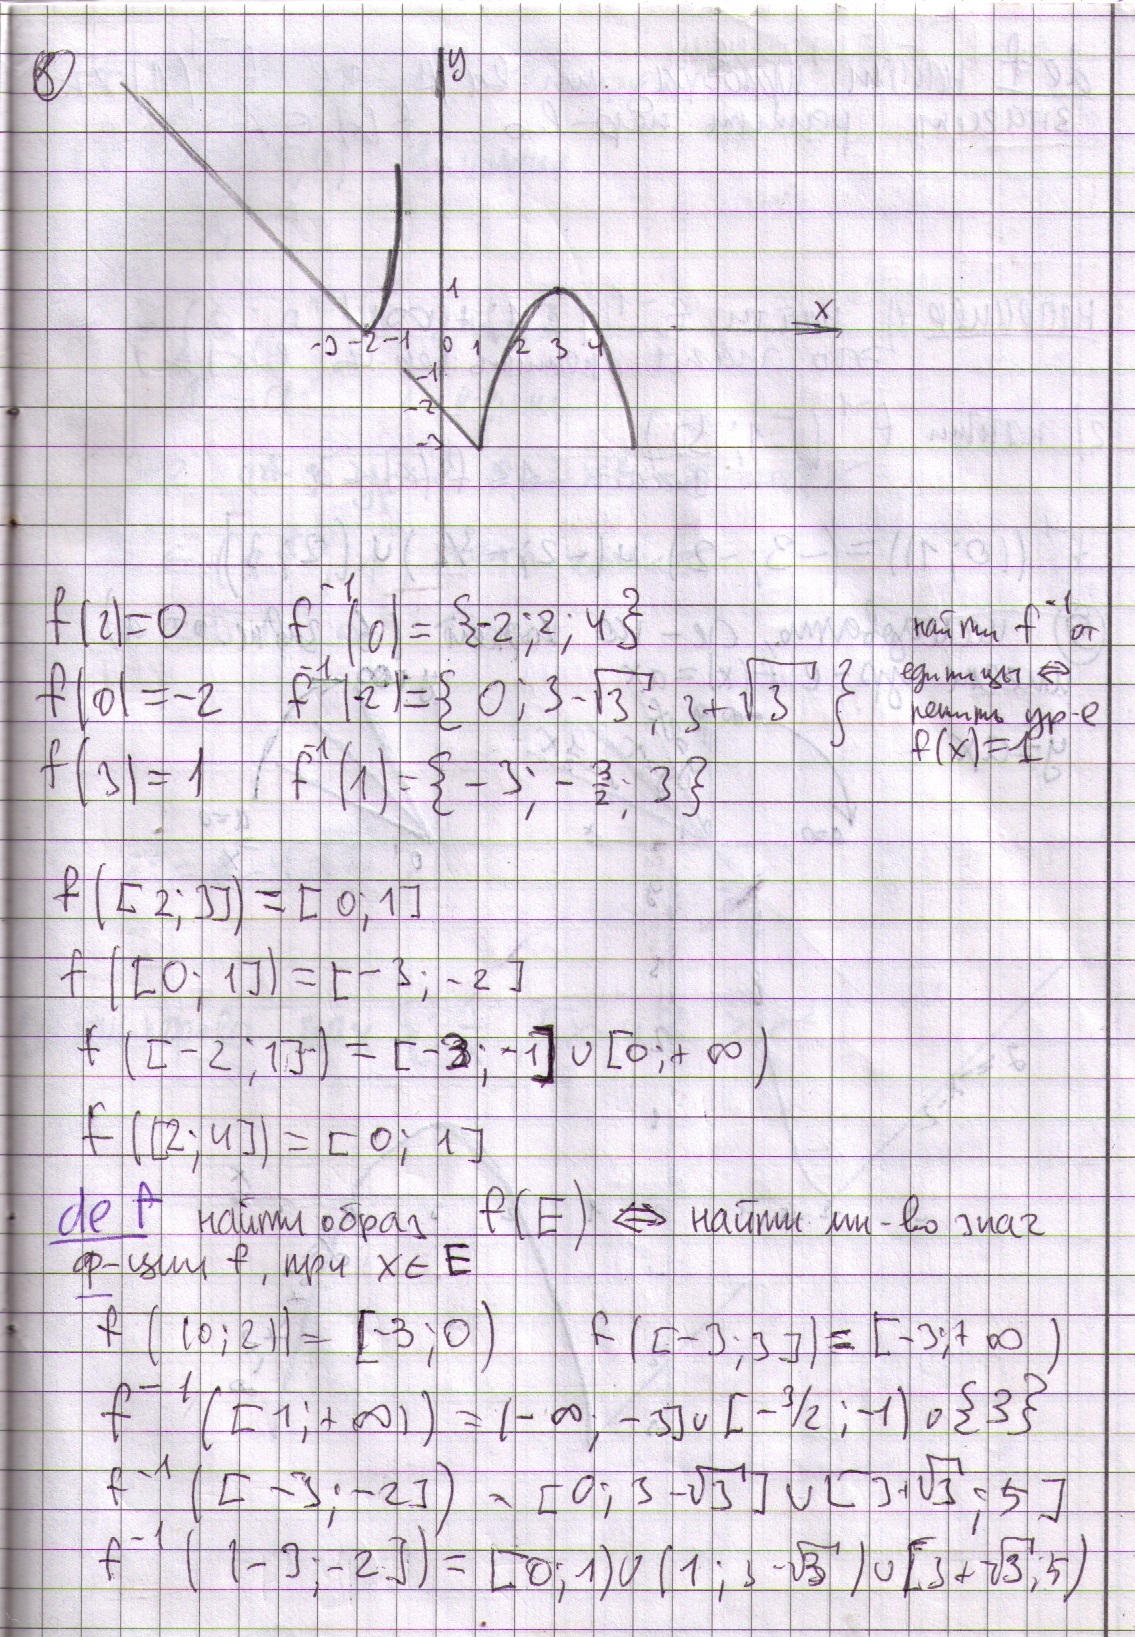 8)
y
x
1
-3 -2 -1 0 1 2 3 4
-1
-2
-3
f(2)=0 f⁻¹(0)={-2; 2; 4} найти f⁻¹ от
f(0)=-2 f⁻¹(-2)={0; 3-√3; 3+√3} единицы ⇔
решить ур-е
f(3)=1 f⁻¹(1)={-3; -3/2; 3} f(x)=1
f([2;3])=[0;1]
f([0;1])=[-3;-2]
f([-2;1])=[-3;-1]∪[0;+∞)
f([2;4])=[0;1]
def найти образ f(E) ⇔ найти мн-во знач
ф-ции f, при x∈E
f((0;2))=[-3;0) f([-3;3])=[-3;+∞)
f⁻¹([1;+∞))=(-∞;-3]∪[-3/2;-1)∪{3}
f⁻¹([-3;-2])=[0;3-√3]∪[3+√3;5]
f⁻¹((-3;-2])=[0;1)∪(1;3-√3)∪[3+√3;5)